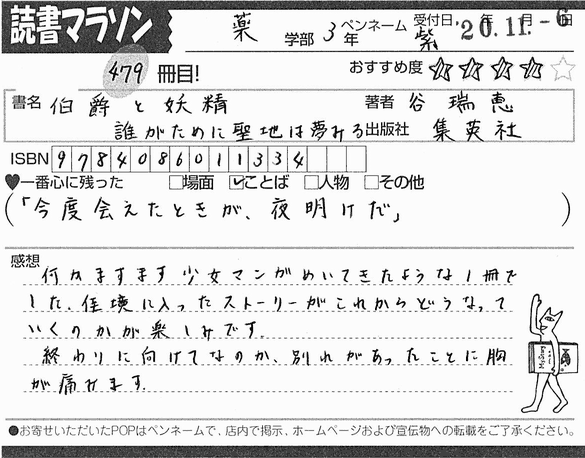 読書マラソン
薬 学部 3年 ペンネーム 紫 受付日 '20.11.-6
年 月 日
479 冊目! おすすめ度 ★★★★☆
書名 伯爵と妖精 著者 谷 瑞恵
誰がために聖地は夢みる 出版社 集英社
ISBN 9784086011334
♥一番心に残った □場面 ☑ことば □人物 □その他
(「今度会えたときが、夜明けだ」)
感想
何かますます少女マンガめいてきたような1冊で
した。佳境に入ったストーリーがこれからどうなって
いくのかが楽しみです。
終わりに向けてなのか、別れがあったことに胸
が痛みます。
●お寄せいただいたPOPはペンネームで、店内で掲示、ホームページおよび宣伝物への転載をご了承ください。